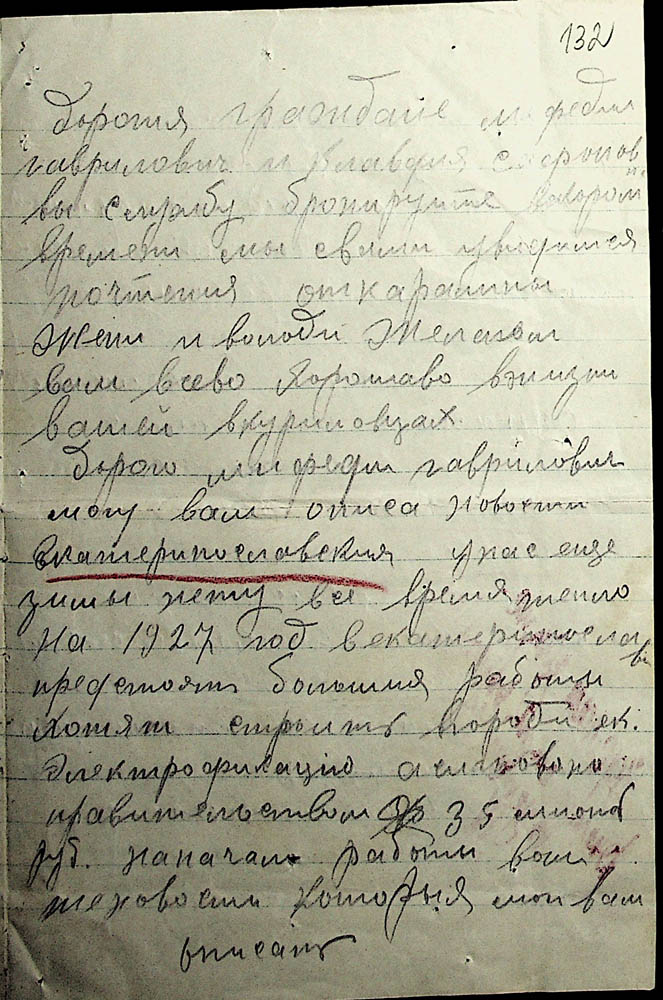 132
Дорогия граждане мифедии
гавриловичь и клавдия сафронов
вы службу бронируите вскором
времени мы свами увидимся
почтения откаралины
Жени и володи Желаем
вам всево хорошаво вжизни
вашей вкуриловцах.
Дорого мифедии гавриловичь
могу вам описа новости
Екатеринославския унас еще
зимы нету все время тепло
На 1927 год векатеринославе
предстоять большия работы
хотят строить город ек.
Электрофикацию асиковано
правительством 35 мионов
руб. наначало работы вот
теновости которыя мог вам
описать